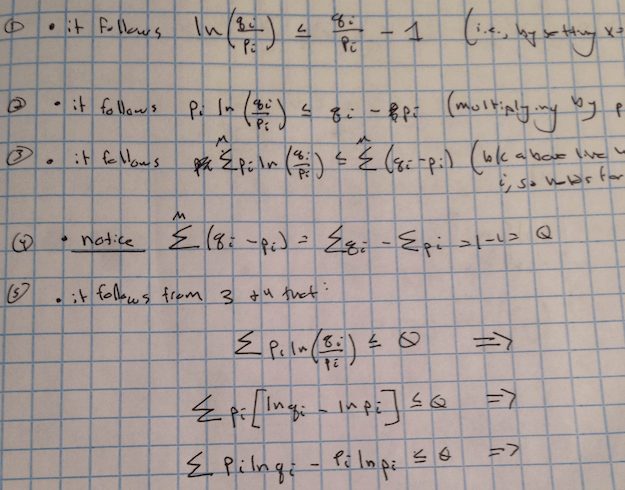 ① • it follows ln(qi/pi) ≤ qi/pi - 1 (i.e., by setting x=
② • it follows pi ln(qi/pi) ≤ qi - pi (multiplying by p
③ • it follows M∑ pi ln(qi/pi) ≤ M∑ (qi-pi) (b/c above true
i, so
④ • notice M∑ (qi-pi) = ∑qi - ∑pi = 1-1 = 0
⑤ • it follows from 3 + 4 that:
∑ pi ln(qi/pi) ≤ 0 =>
∑ pi[lnqi - lnpi] ≤ 0 =>
∑ pilnqi - pilnpi ≤ 0 =>